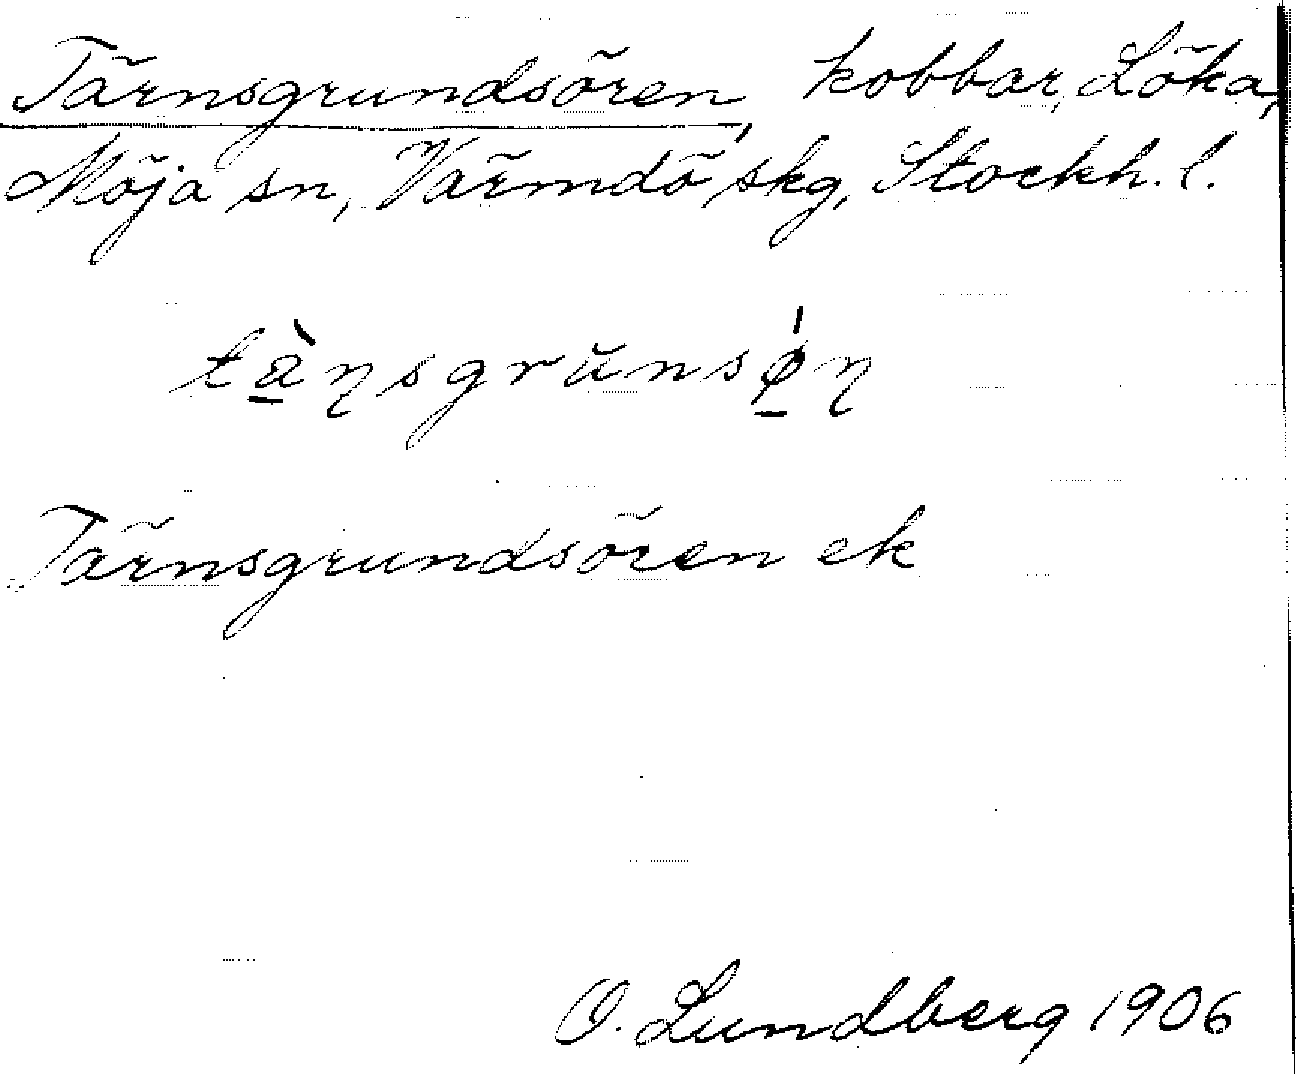 Tärnsgrundsören, kobbar, Löka,
Möja sn, Värmdö skg, Stockh. l.
tä̀ɳsgrŭnsǿɳ
Tärnsgrundsören ek
O. Lundberg 1906